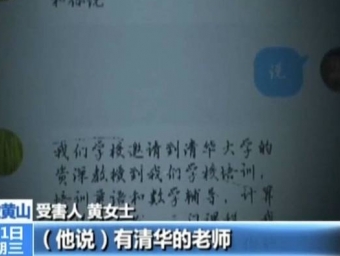 说
我们学校邀请到清华大学的
资深教授到我们学校培训,
培训英语和数学辅导,计算
黄山 受害人 黄女士
1日
期三
（他说）有清华的老师